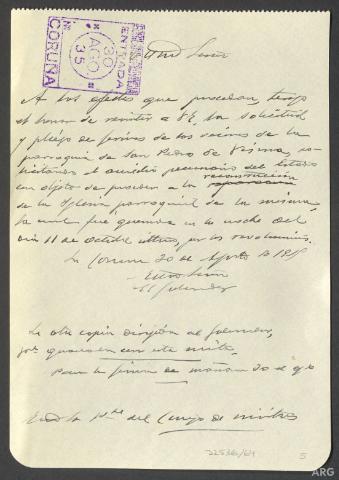 ENTRADA
30
AGO.
35
Nº
CORUÑA
Excmo Señor
A los efectos que procedan, tengo
el honor de remitir a VE, la solicitud
y pliego de firmas de los vecinos de la
parroquia de San Pedro de
el auxilio pecuniario del Estado
con objeto de proceder a la reconstrucción
de la Iglesia parroquial de la misma,
la cual fue quemada en la noche del
día 11 de octubre último, por los revolucionarios.
La Coruña 30 de Agosto de 1935
Excmo Señor
El Gobernador
La otra copia dirigida al Gobernador,
que con este escrito.
Para la firma de mañana 30 de agto
Excmo Sr Pte del Consejo de Ministros
22536/64
5
ARG